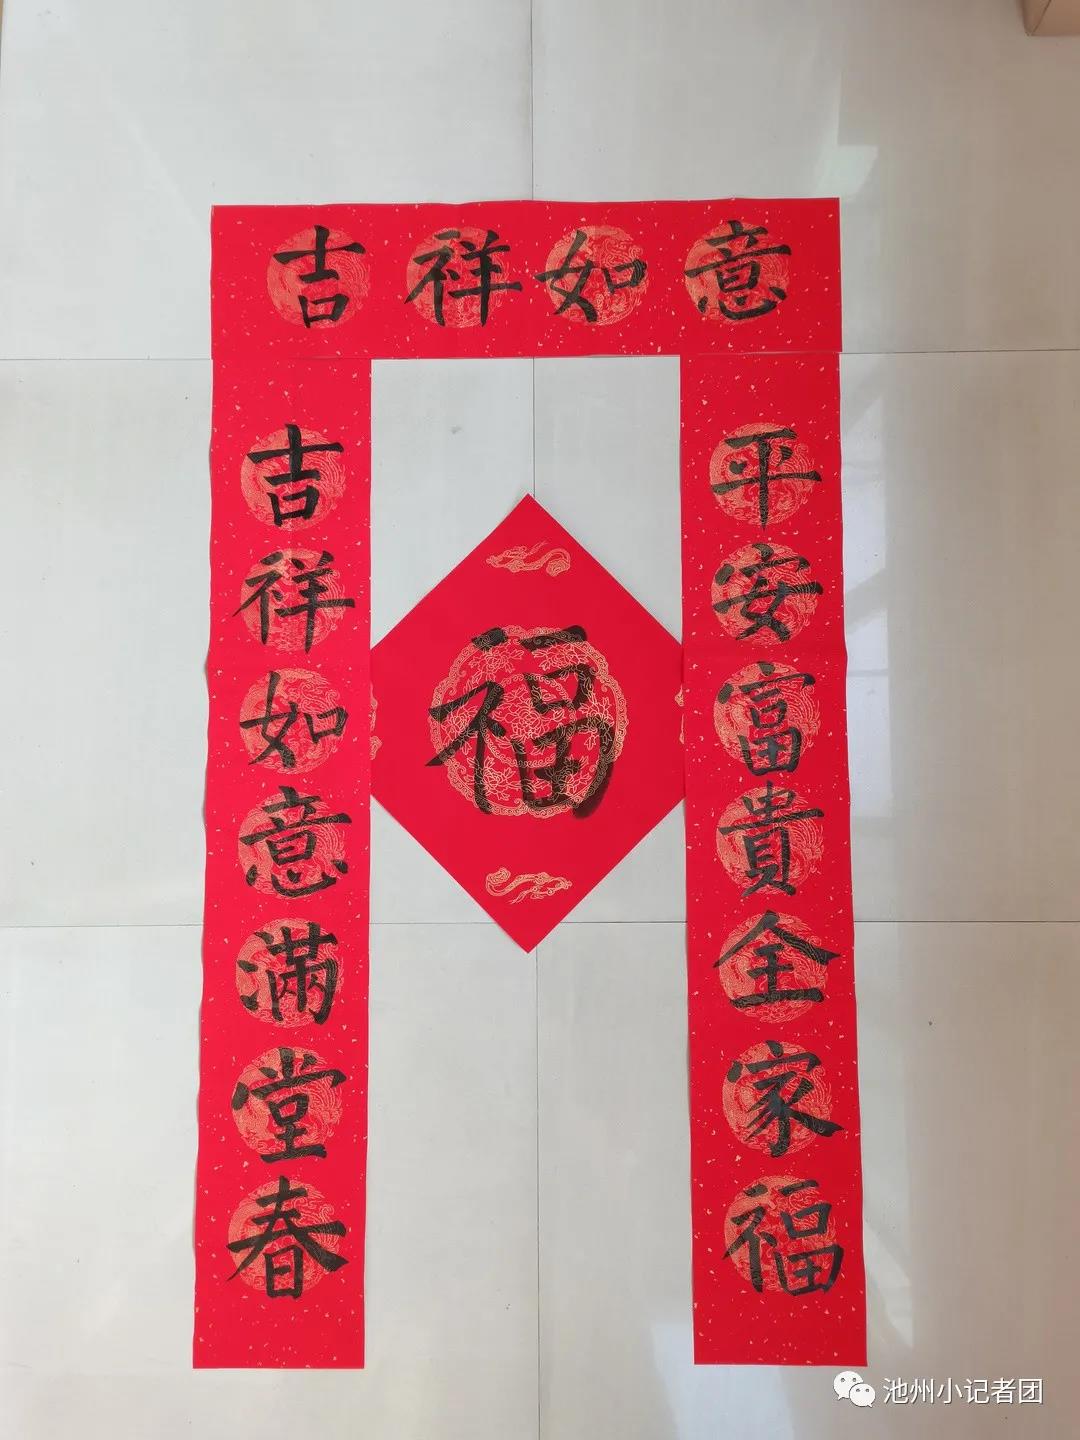 吉祥如意
平安富貴全家福
吉祥如意滿堂春
福
池州小记者团